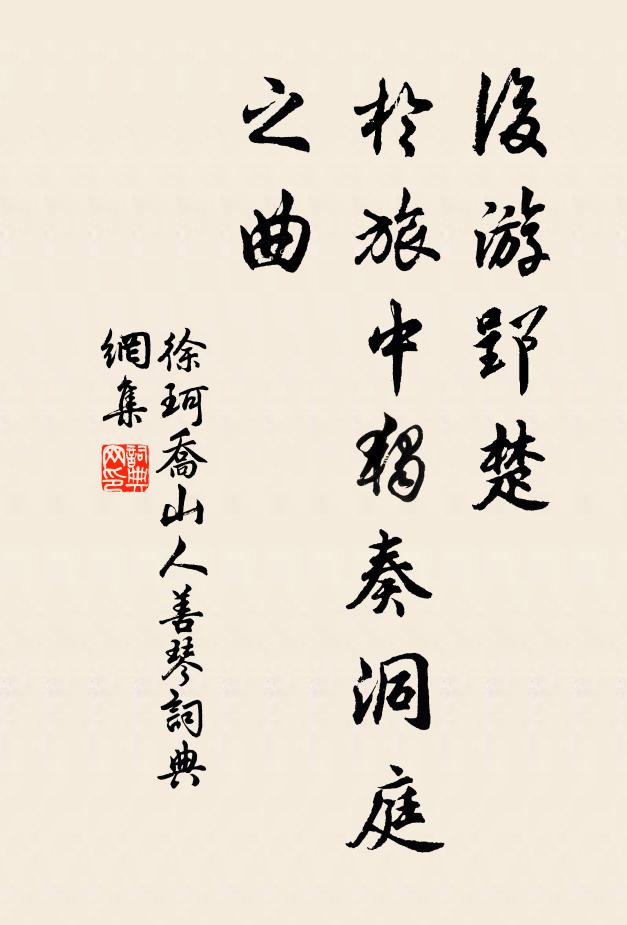 後游郢楚
於旅中獨奏洞庭
之曲
徐珂喬山人善琴詞典
網集
詞典
网印